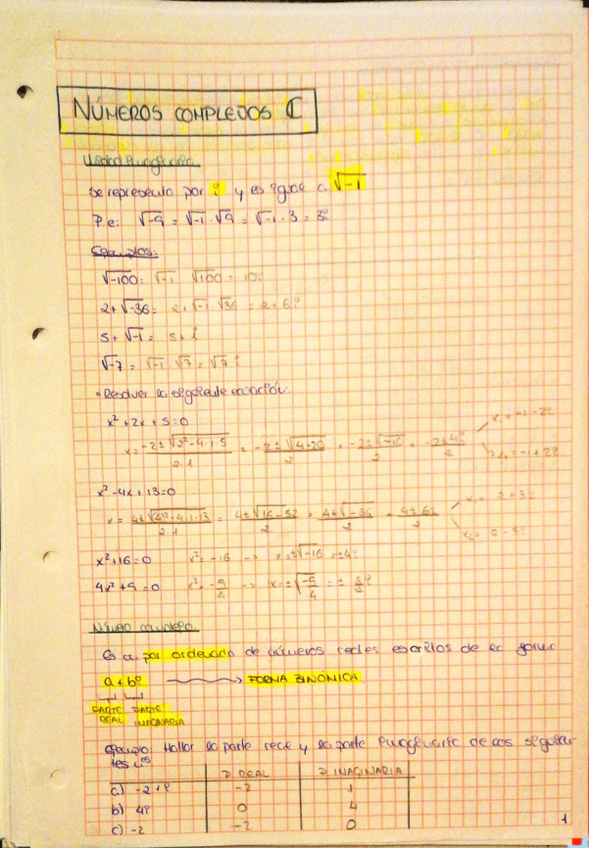 NÚMEROS COMPLEJOS ℂ
Unidad Imaginaria
Se representa por i y es igual a √-1
P.e: √-9 = √-1 · √9 = √-1 · 3 = 3i
Ejemplos:
√-100 = √-1 · √100 = 10i
2+√-36 = 2+√-1 · √36 = 2+6i
5+√-1 = 5+i
√-7 = √-1 · √7 = √7 i
• Resolver la siguiente ecuación:
x²+2x+5=0
x = (-2±√(2²-4·1·5))/(2·1) = (-2±√(4-20))/2 = (-2±√-16)/2 = (-2±4i)/2 x₁=-1-2i
x₂=-1+2i
x²-4x+13=0
x = (4±√((4)²-4·1·13))/(2·1) = (4±√(16-52))/2 = (4±√-36)/2 = (4±6i)/2 x₁= 2+3i
x₂= 2-3i
x²+16=0 x²=-16 -> x=±√-16=±4i
4x²+9=0 x²=-9/4 -> x=±√(-9/4)=±3/2 i
Número complejo
Es un par ordenado de números reales escritos de la forma
a+bi ~> FORMA BINÓMICA
PARTE PARTE
REAL IMAGINARIA
Ejemplo: Hallar la parte real y la parte imaginaria de los siguien-
tes nºs
P. REAL P. IMAGINARIA
a) -2+i -2 1
b) 4i 0 4
c) -2 -2 0
1